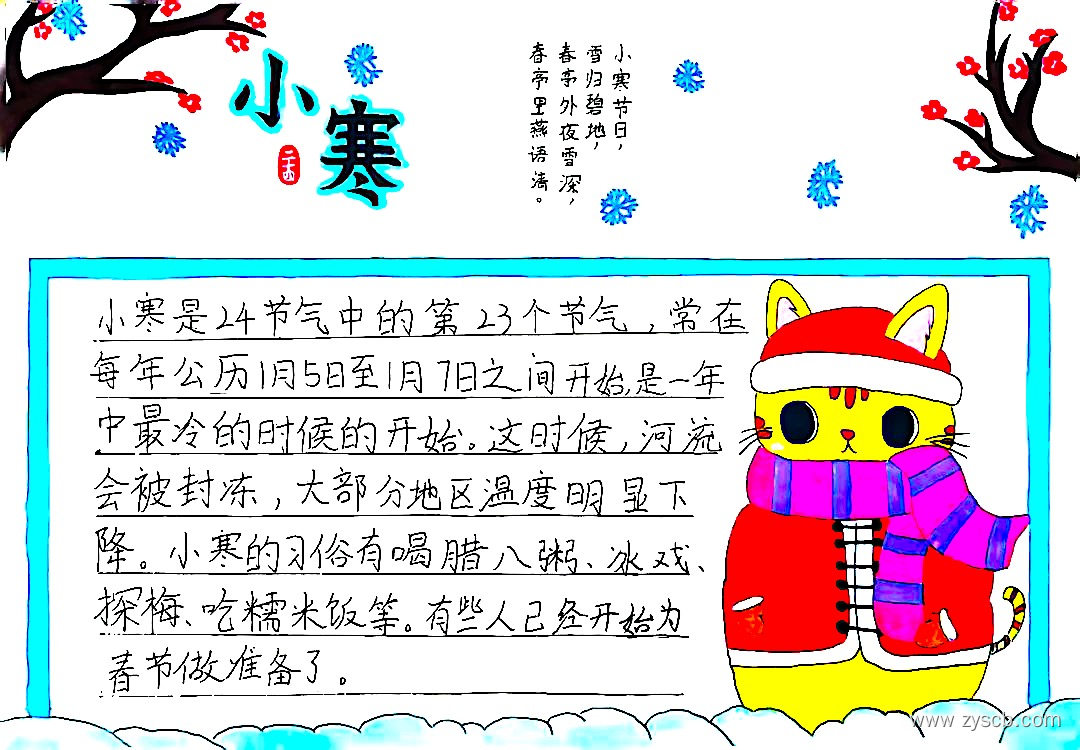 小寒
二十四
小寒节日，
雪归碧地，
春亭外夜雪深，
春亭里燕语清。
小寒是24节气中的第23个节气，常在
每年公历1月5日至1月7日之间开始,是一年
中最冷的时候的开始。这时候，河流
会被封冻，大部分地区温度明显下
降。小寒的习俗有喝腊八粥、冰戏、
探梅、吃糯米饭等。有些人已经开始为
春节做准备了。
www.zyscb.com